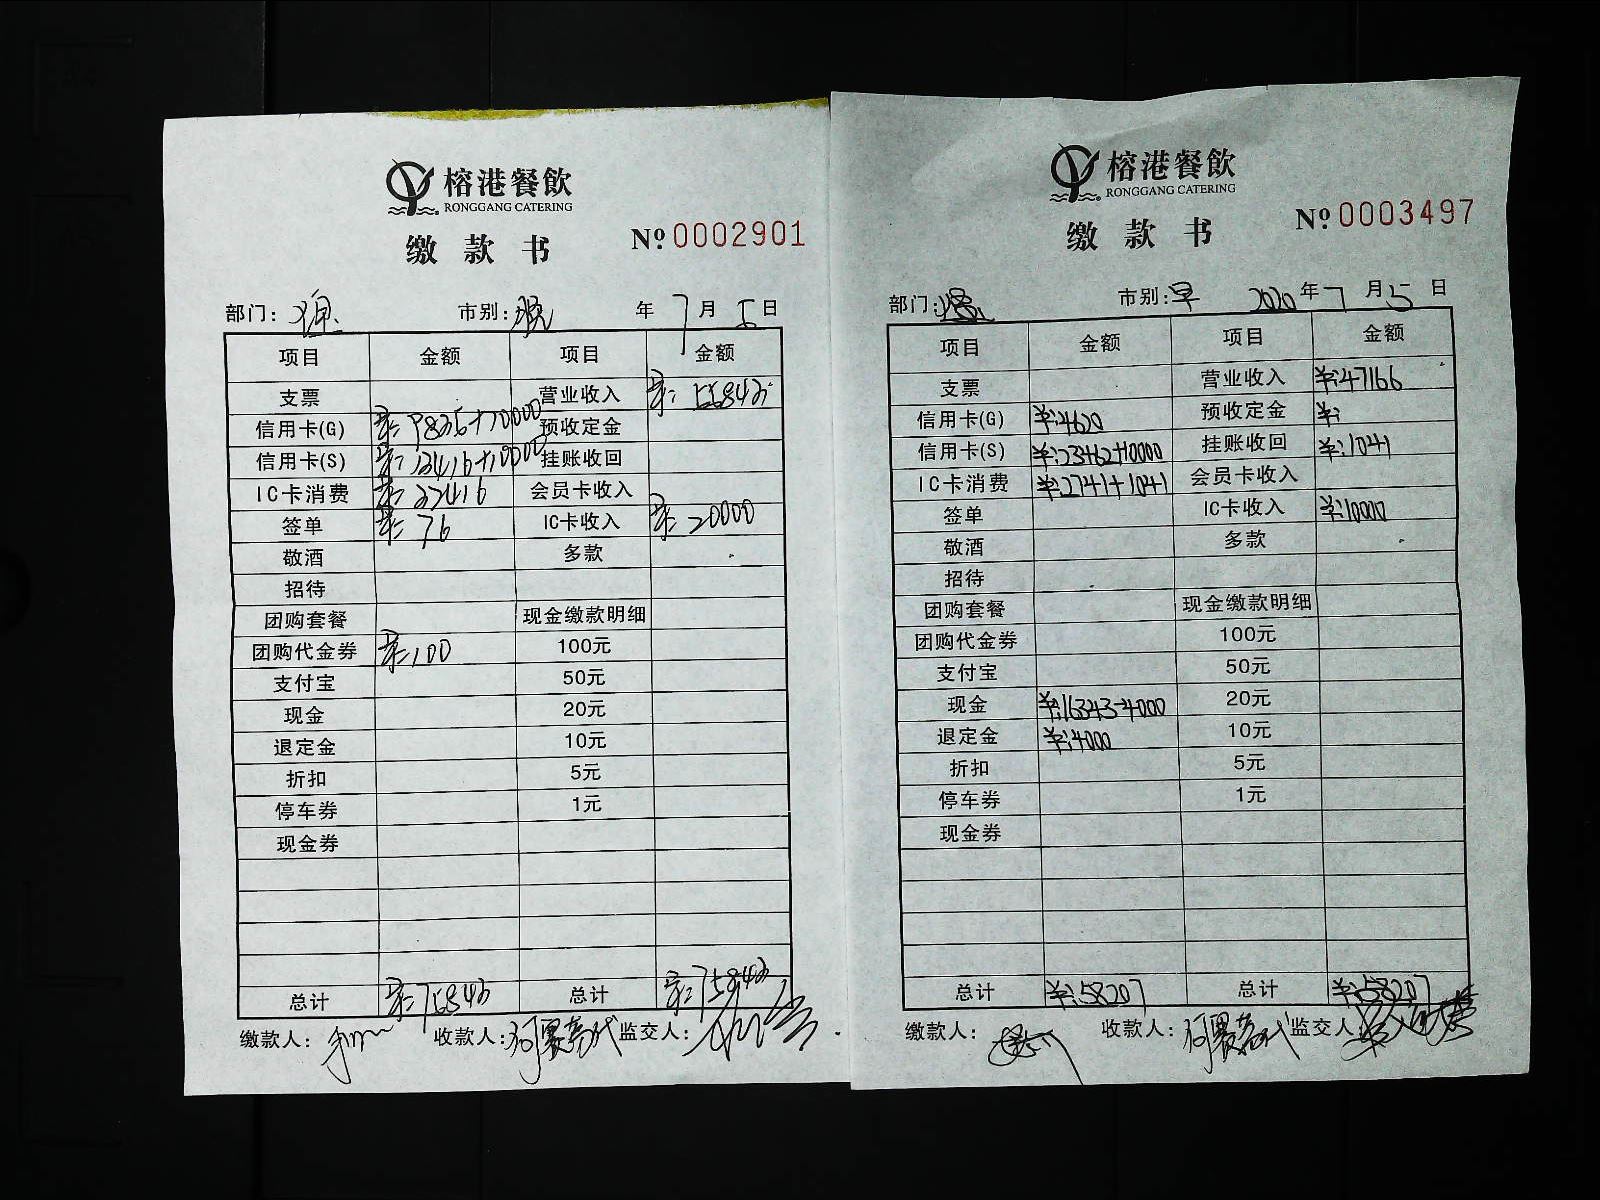 榕港餐飲
RONGGANG CATERING
缴款书
№ 0002901
部门: 市别:晚 年7月5日
项目 金额 项目 金额
支票 营业收入 ¥:55843
信用卡(G) ¥:9835+10000 预收定金
信用卡(S) ¥:23416+10000 挂账收回
IC卡消费 ¥:22416 会员卡收入
签单 ¥:76 IC卡收入 ¥:20000
敬酒 多款
招待
团购套餐 现金缴款明细
团购代金券 ¥:100 100元
支付宝 50元
现金 20元
退定金 10元
折扣 5元
停车券 1元
现金券
总计 ¥:75843 总计 ¥:75843
缴款人: 收款人: 监交人:
榕港餐飲
RONGGANG CATERING
缴款书
№ 0003497
部门: 市别:早 2020年7月5日
项目 金额 项目 金额
支票 营业收入 ¥:47166
信用卡(G) ¥:4620 预收定金 ¥:
信用卡(S) ¥:23462+10000 挂账收回 ¥:1041
IC卡消费 ¥:2741+1041 会员卡收入
签单 IC卡收入 ¥:10000
敬酒 多款
招待
团购套餐 现金缴款明细
团购代金券 100元
支付宝 50元
现金 ¥:16343-4000 20元
退定金 ¥:4000 10元
折扣 5元
停车券 1元
现金券
总计 ¥:58207 总计 ¥:58207
缴款人: 收款人: 监交人: